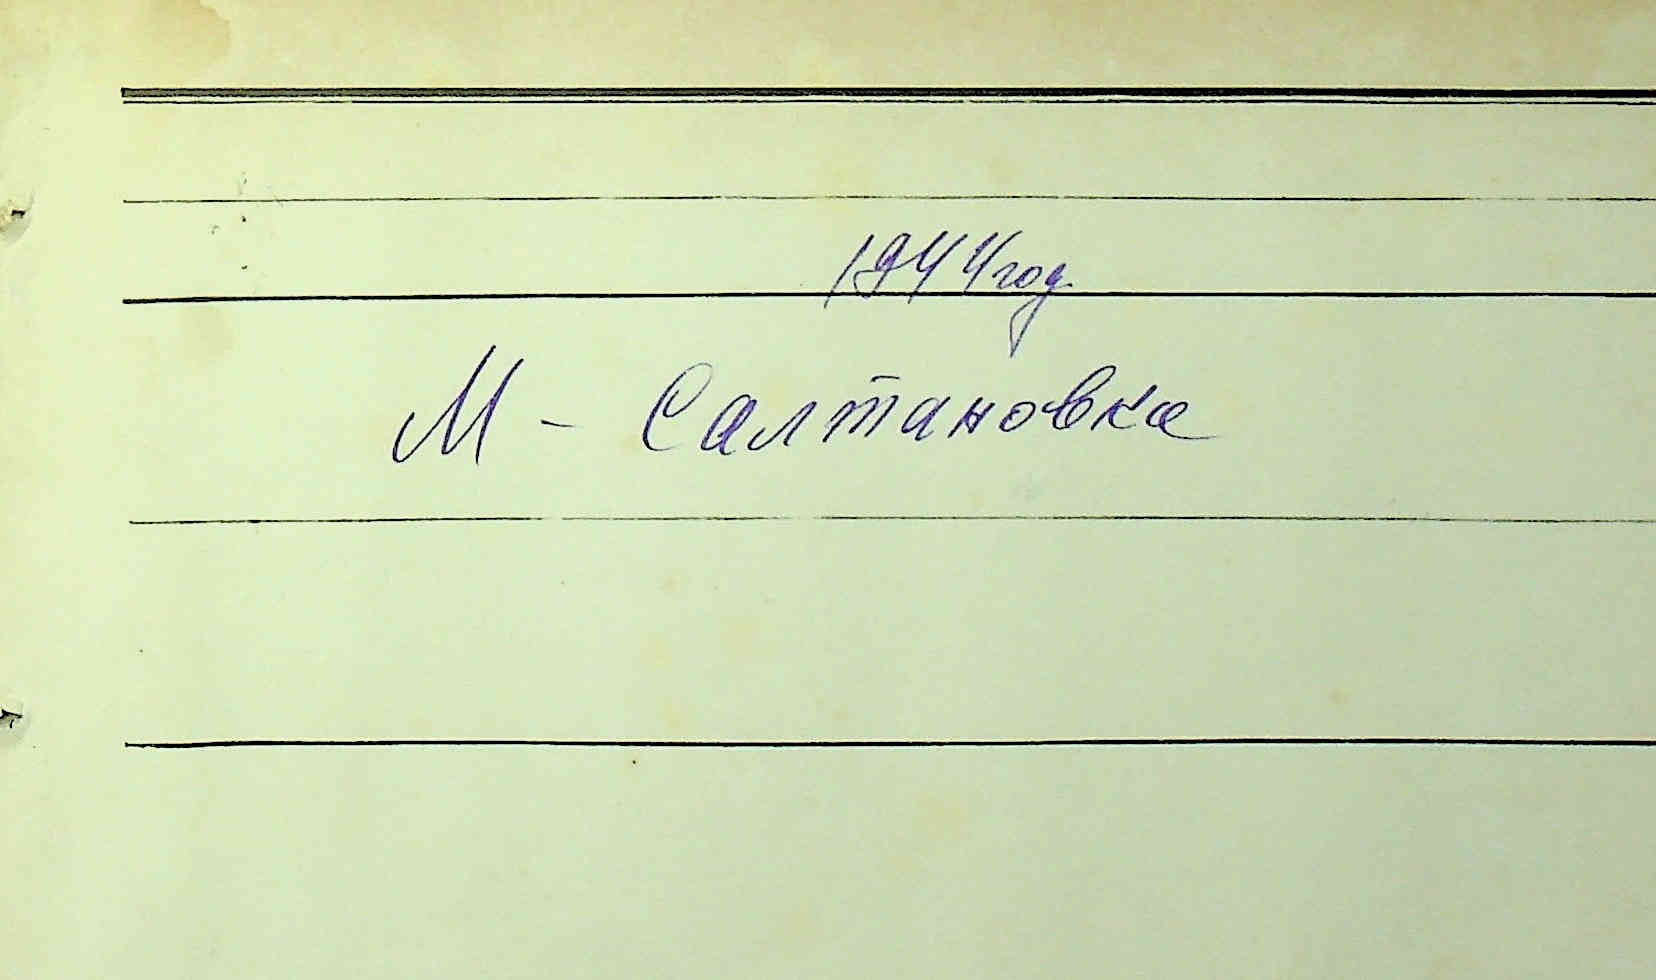 1944 год
М - Салтановка